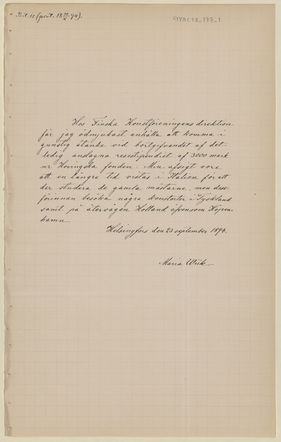 Hos Finska Konstföreningens direktion
får jag ödmjukast anhålla att komma i
gunstig åtanke vid bortgifvandet af det
ledig anslagna resestipendiet af 3000 mark
ur Hovingska fonden. Min afsigt vore
att en längre tid vistas i Italien för att
der studera de gamla mästarne, men dess
förinnan besöka några konstorter i Tyskland
samt på återvägen Holland äfvensom Köpen
hamn.
Helsingfors den 23 september 1894.
Maria Wiik